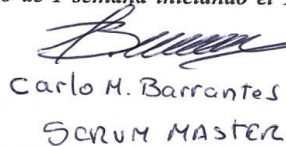 de 1 semana iniciando el
Carlo M. Barrantes
SCRUM MASTER